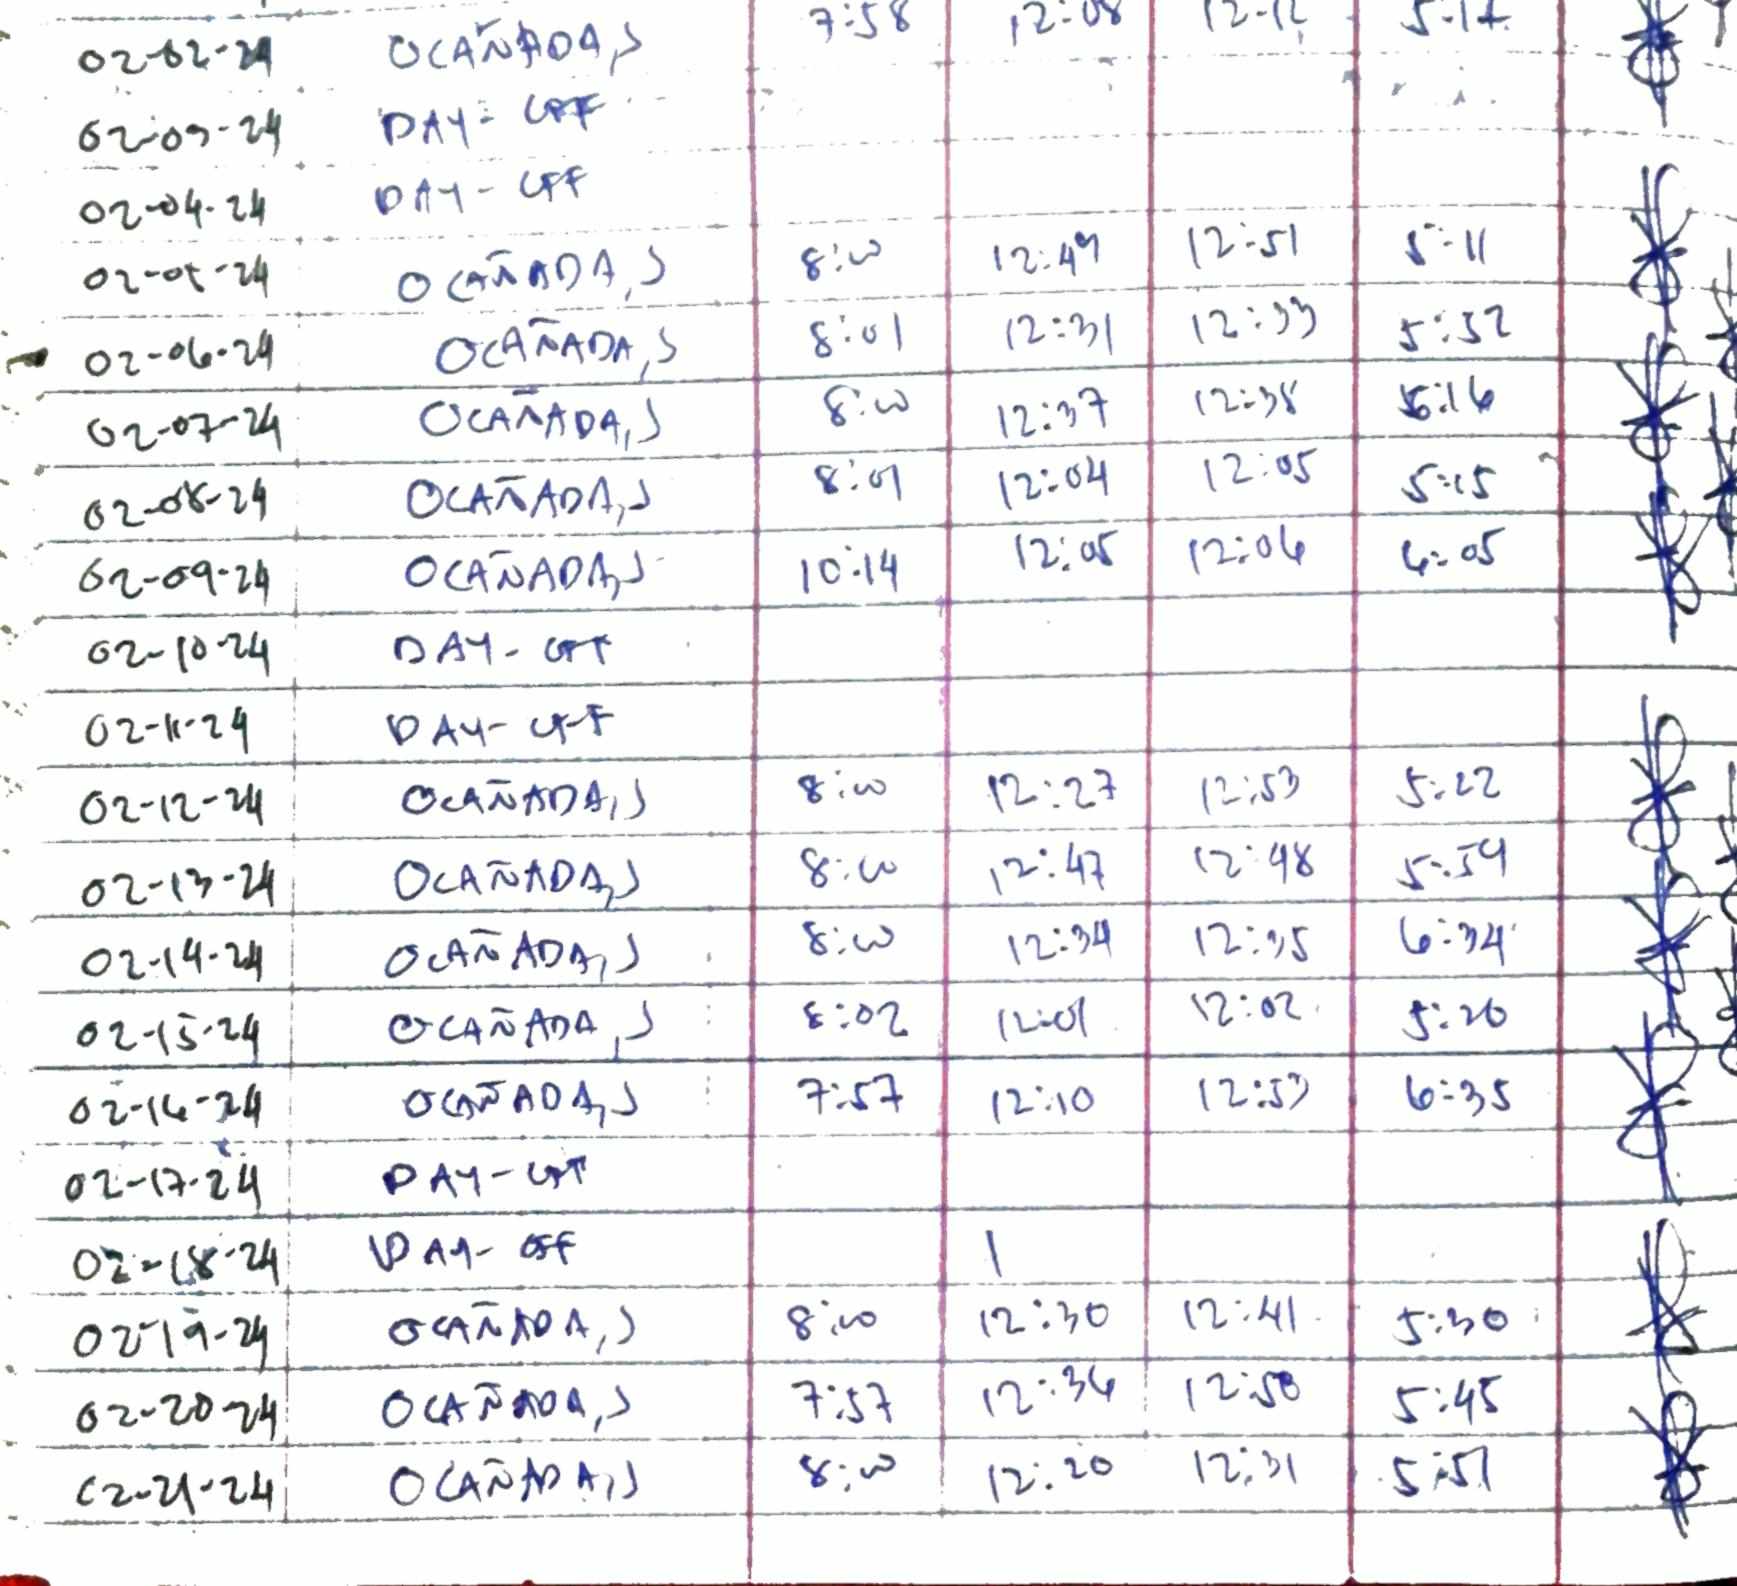 02-02-24 OCAÑADA, J 7:58 12:08 12:12 5:17
02-03-24 DAY-OFF
02-04-24 DAY-OFF
02-05-24 OCAÑADA, J 8:00 12:49 12:51 5:11
02-06-24 OCAÑADA, J 8:01 12:31 12:33 5:52
02-07-24 OCAÑADA, J 8:00 12:37 12:38 5:16
02-08-24 OCAÑADA, J 8:01 12:04 12:05 5:15
02-09-24 OCAÑADA, J 10:14 12:05 12:06 6:05
02-10-24 DAY-OFF
02-11-24 DAY-OFF
02-12-24 OCAÑADA, J 8:00 12:27 12:53 5:22
02-13-24 OCAÑADA, J 8:00 12:47 12:48 5:59
02-14-24 OCAÑADA, J 8:00 12:34 12:35 6:34
02-15-24 OCAÑADA, J 8:02 12:01 12:02 5:20
02-16-24 OCAÑADA, J 7:57 12:10 12:53 6:35
02-17-24 DAY-OFF
02-18-24 DAY-OFF
02-19-24 OCAÑADA, J 8:00 12:30 12:41 5:30
02-20-24 OCAÑADA, J 7:57 12:36 12:50 5:45
02-21-24 OCAÑADA, J 8:00 12:20 12:31 5:51